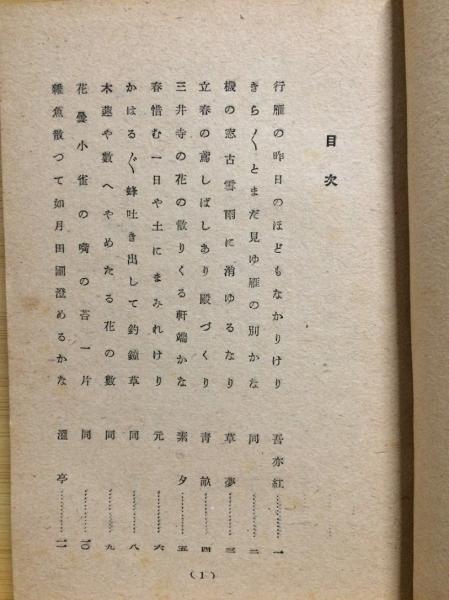 目次
行雁の昨日のほどもなかりけり 吾亦紅…………一
きら〱とまだ見ゆ雁の別かな 同…………二
機の窓古雪雨に消ゆるなり 草夢…………三
立春の鳶しばしあり殿づくり 青畝…………四
三井寺の花の散りくる軒端かな 素夕…………五
春惜む一日や土にまみれけり 元…………六
かはる〲蜂吐き出して釣鐘草 同…………八
木蓮や數へやめたる花の數 同…………九
花曇小雀の嘴の苔一片 同…………一〇
雜魚散つて如月田圃澄めるかな 亭…………一一
(1)